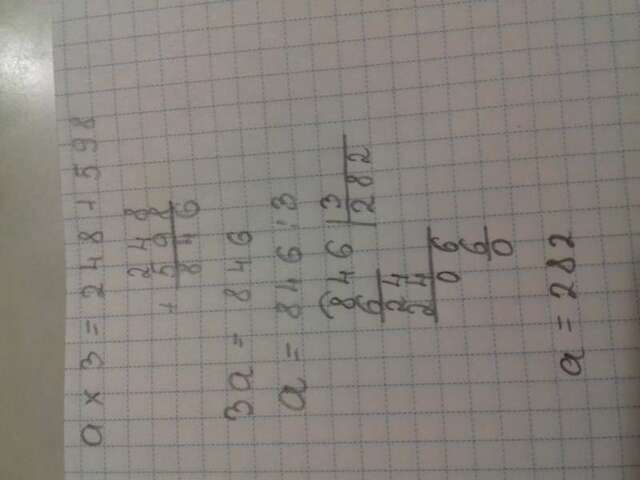 a × 3 = 248 + 598
248
+ 598
846
3a = 846
a = 846 : 3
846 | 3
6 | 282
24
24
06
6
0
a = 282